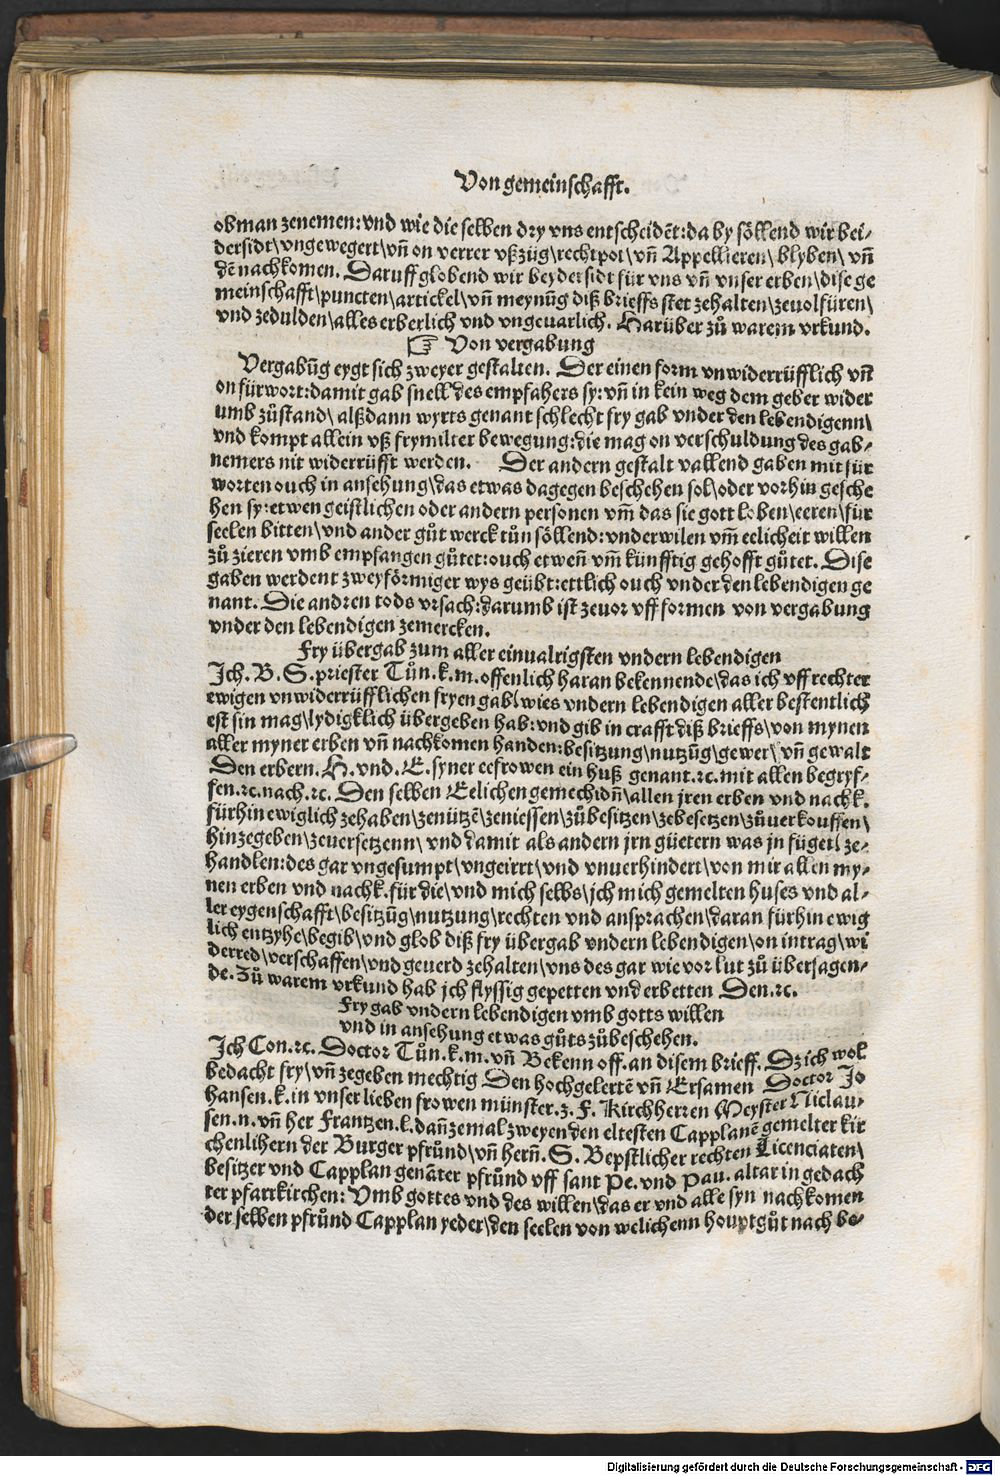 Von gemeinschafft.
obman zenemen: vnd wie die selben dry vns entscheidēt: da by söllend wir bei⸗
dersidt\ vngewegert\ vn̄ on verrer vßzüg\ rechtpot\ vn̄ Appellieren\ blyben\ vn̄
dē nachkomen. Daruff globend wir beydersidt für vns vn̄ vnser erben\ dise ge
meinschafft\ puncten\ artickel\ vn̄ meynūg diß brieffs stet zehalten\ zeuolfüren\
vnd zedulden\ alles erberlich vnd vngeuarlich. Harüber zů warem vrkund.
☞ Von vergabung
Vergabūg eygt sich zweyer gestalten. Der einen form vnwiderrüfflich vn̄
on fürwort: damit gab snell des empfahers sy: vn̄ in kein weg dem geber wider
umb zůstand\ alßdann wyrts genant schlecht fry gab vnder den lebendigenn\
vnd kompt allein vß frymilter bewegung: die mag on verschuldung des gab⸗
nemers nit widerrüfft werden. Der andern gestalt vallend gaben mit für
worten ouch in ansehung\ das etwas dagegen beschehen sol\ oder vorhin gesche
hen sy: etwen geistlichen oder andern personen vm̄ das sie gott loben\ eeren\ für
seelen bitten\ vnd ander gůt werck tůn söllend: vnderwilen vm̄ eelicheit willen
zů zieren vmb empfangen gůtet: ouch etwen̄ vm̄ künfftig gehofft gůtet. Dise
gaben werdent zweyförmiger wys geübt: ettlich ouch vnder den lebendigen ge
nant. Die andren tods vrsach: darumb ist zeuor vff formen von vergabung
vnder den lebendigen zemercken.
Fry übergab zum aller einualrigsten vndern lebendigen
Ich. B. S. priester Tůn. k. m. offenlich haran bekennende\ das ich vff rechter
ewigen vnwiderrüfflichen fryen gab\ wies vndern lebendigen aller bestentlich
est sin mag\ lydigklich übergeben hab: vnd gib in crafft diß brieffs\ von mynen
aller myner erben vn̄ nachkomen handen: besitzung\ nutzūg\ gewer\ vn̄ gewalt
Den erbern. H. vnd. E. syner eefrowen ein huß genant. ꝛc. mit allen begryf⸗
fen. ꝛc. nach. ꝛc. Den selben Eelichen gemechidn̄\ allen jren erben vnd nachk.
fürhin ewiglich zehaben\ zenützē\ zeniessen\ zůbesitzen\ zebesetzen\ zůuerkouffen\
hinzegeben\ zeuersetzenn\ vnd damit als andern jrn güetern was jn füget\ ze⸗
handlen: des gar vngesumpt\ vngeirrt\ vnd vnuerhindert\ von mir allen my⸗
nen erben vnd nachk. für die\ vnd mich selbs\ jch mich gemelten huses vnd al⸗
ler eygenschafft\ besitzūg\ nutzung\ rechten vnd ansprachen\ daran fürhin ewig
lich entzyhe\ begib\ vnd glob diß fry übergab vndern lebendigen\ on intrag\ wi
derred\ verschaffen\ vnd geuerd zehalten\ vns des gar wie vor lut zů übersagen⸗
de. Zů warem vrkund hab jch flyssig gepetten vnd erbetten Den. ꝛc.
Fry gab vndern lebendigen vmb gotts willen
vnd in ansehung etwas gůts zůbeschehen.
Ich Con. ꝛc. Doctor Tůn. k. m. vn̄ Bekenn off. an disem brieff. Dz ich wol
bedacht fry\ vn̄ zegeben mechtig Den hochgelertē vn̄ Ersamen Doctor Jo
hansen. k. in vnser lieben frowen münster. z. F. Kirchherren Meyster Niclau⸗
sen. n. vn̄ her Frantzen. k. dan̄zemal zweyen den eltesten Capplanē gemelter kir
chen lihern der Burger pfrůnd\ vn̄ hern̄. S. Bepstlicher rechten Licenciaten\
besitzer vnd Capplan genāter pfrůnd vff sant Pe. vnd Pau. altar in gedach
ter pfarrkirchen: Vmb gottes vnd des willen\ das er vnd alle syn nachkomen
der selben pfrůnd Capplan yeder\ den seelen von welichenn houptgůt nach be⸗
Digitalisierung gefördert durch die Deutsche Forschungsgemeinschaft - DFG